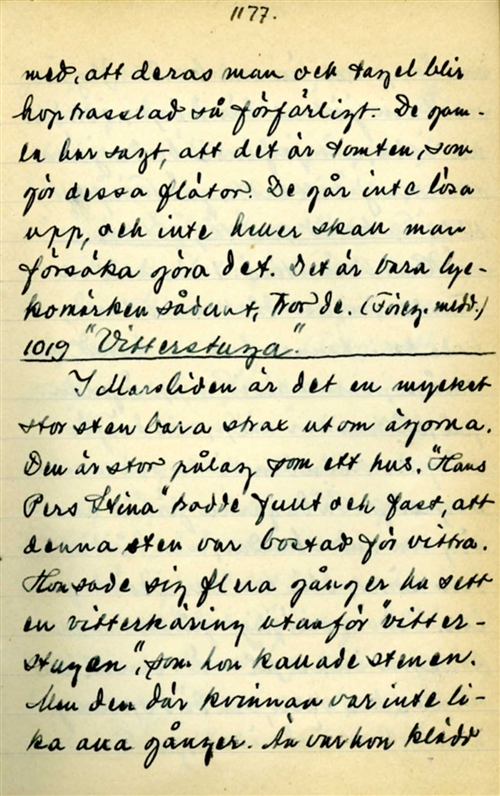 1177.
med, att deras man och tagel blir
hoptrasslad så förfärligt. De gam-
la har sagt, att det är tomten, som
gör dessa flätor. De går inte lösa
upp, och inte heller skall man
försöka göra det. Det är bara lyc-
komärken sådant, tror de. (Föreg. medd.)
1019 "Vitterstuga".
I Marsliden är det en mycket
stor sten bara strax utom ägorna.
Den är stor pålag som ett hus. "Hans
Pers Stina" trodde fullt och fast, att
denna sten var bostad för vittra.
Hon sade sig flera gånger ha sett
en vitterkäring utanför "vitter-
stugan", som hon kallade stenen.
Men den där kvinnan var inte li-
ka alla gånger. Än var hon klädd